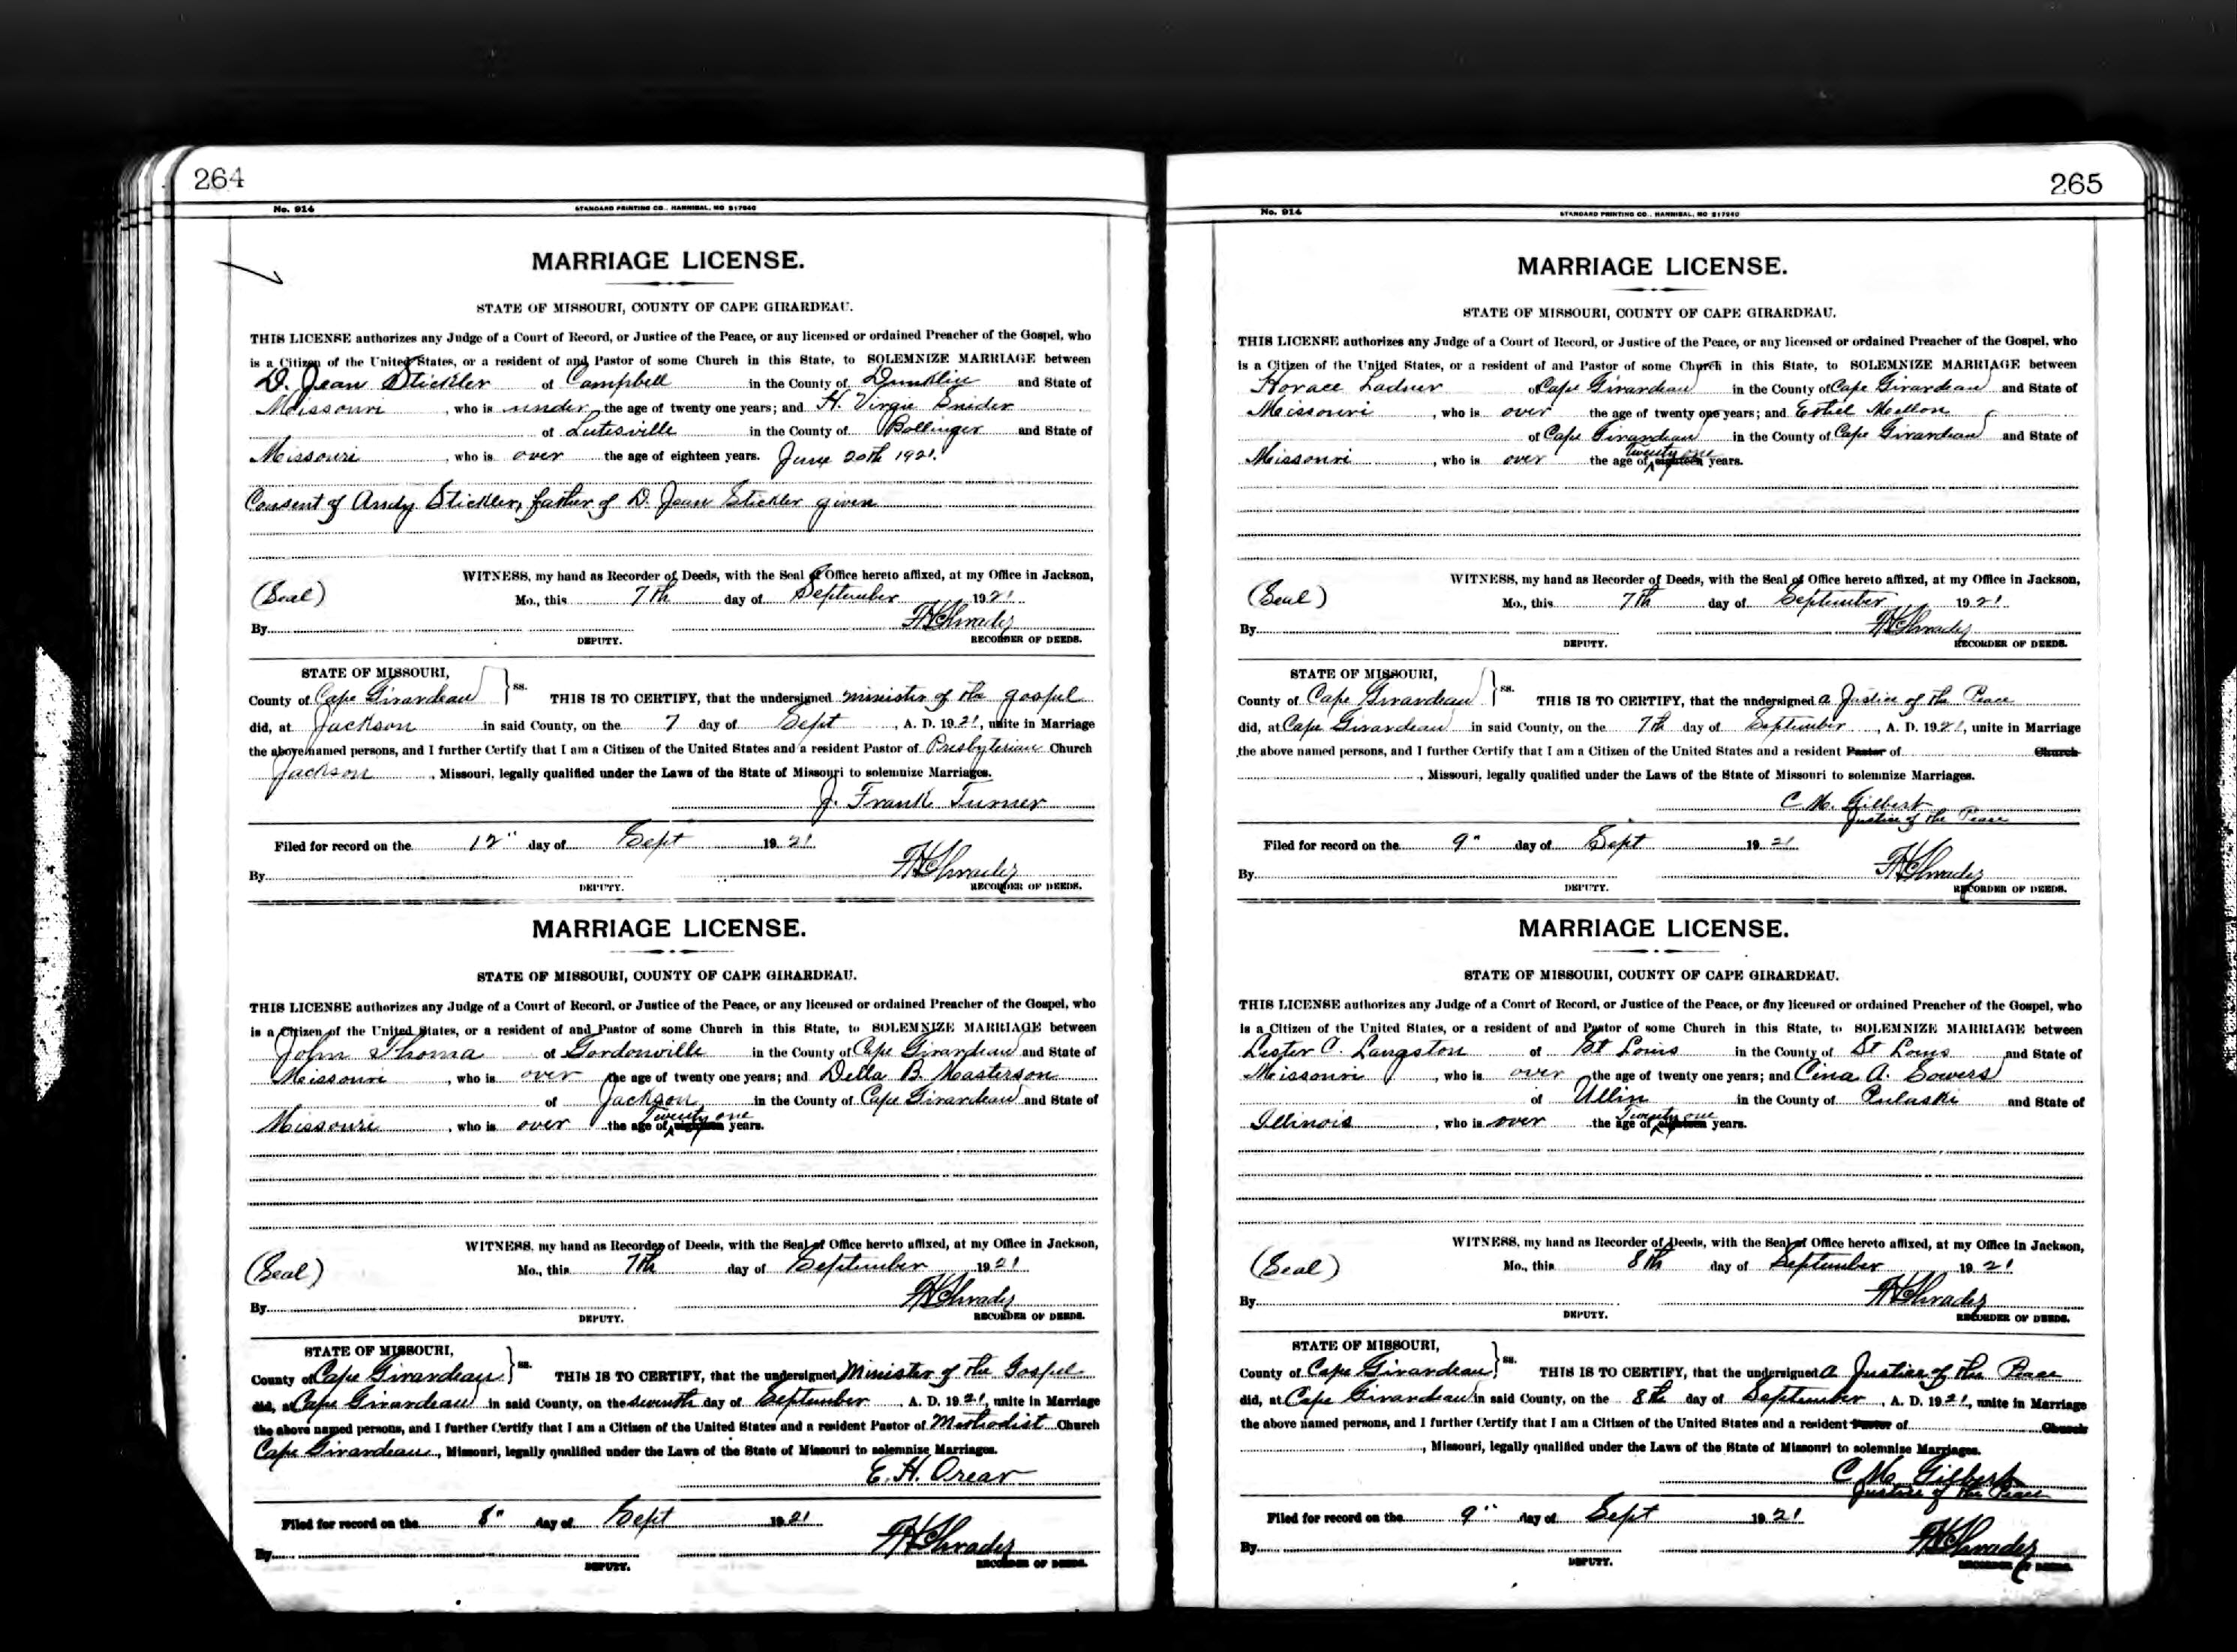 264
No. 914 STANDARD PRINTING CO., HANNIBAL, MO 217940
MARRIAGE LICENSE.
STATE OF MISSOURI, COUNTY OF CAPE GIRARDEAU.
THIS LICENSE authorizes any Judge of a Court of Record, or Justice of the Peace, or any licensed or ordained Preacher of the Gospel, who
is a Citizen of the United States, or a resident of and Pastor of some Church in this State, to SOLEMNIZE MARRIAGE between
D. Jean Stickler of Campbell in the County of Dunklin and State of
Missouri, who is under the age of twenty one years; and H. Virgie Snider
of Lutesville in the County of Bollinger and State of
Missouri, who is over the age of eighteen years. June 20th 1921.
Consent of Andy Stickler, father of D. Jean Stickler given
WITNESS, my hand as Recorder of Deeds, with the Seal of Office hereto affixed, at my Office in Jackson,
(Seal) Mo., this 7th day of September 1921
By H Shrader
DEPUTY. RECORDER OF DEEDS.
STATE OF MISSOURI,
County of Cape Girardeau } ss. THIS IS TO CERTIFY, that the undersigned minister of the gospel
did, at Jackson in said County, on the 7 day of Sept, A. D. 1921, unite in Marriage
the above named persons, and I further Certify that I am a Citizen of the United States and a resident Pastor of Presbyterian Church
Jackson, Missouri, legally qualified under the Laws of the State of Missouri to solemnize Marriages.
J. Frank Turner
Filed for record on the 12" day of Sept 1921
By H Shrader
DEPUTY. RECORDER OF DEEDS.
MARRIAGE LICENSE.
STATE OF MISSOURI, COUNTY OF CAPE GIRARDEAU.
THIS LICENSE authorizes any Judge of a Court of Record, or Justice of the Peace, or any licensed or ordained Preacher of the Gospel, who
is a Citizen of the United States, or a resident of and Pastor of some Church in this State, to SOLEMNIZE MARRIAGE between
John Thoma of Gordonville in the County of Cape Girardeau and State of
Missouri, who is over the age of twenty one years; and Della B. Masterson
of Jackson in the County of Cape Girardeau and State of
Missouri, who is over the age of Twenty one eighteen years.
WITNESS, my hand as Recorder of Deeds, with the Seal of Office hereto affixed, at my Office in Jackson,
(Seal) Mo., this 7th day of September 1921
By H Shrader
DEPUTY. RECORDER OF DEEDS.
STATE OF MISSOURI,
County of Cape Girardeau } ss. THIS IS TO CERTIFY, that the undersigned Minister of the Gospel
did, at Cape Girardeau in said County, on the seventh day of September, A. D. 1921, unite in Marriage
the above named persons, and I further Certify that I am a Citizen of the United States and a resident Pastor of Methodist Church
Cape Girardeau, Missouri, legally qualified under the Laws of the State of Missouri to solemnize Marriages.
E. H. Orear
Filed for record on the 8" day of Sept 1921
By H Shrader
DEPUTY. RECORDER OF DEEDS.
265
No. 914 STANDARD PRINTING CO., HANNIBAL, MO 217940
MARRIAGE LICENSE.
STATE OF MISSOURI, COUNTY OF CAPE GIRARDEAU.
THIS LICENSE authorizes any Judge of a Court of Record, or Justice of the Peace, or any licensed or ordained Preacher of the Gospel, who
is a Citizen of the United States, or a resident of and Pastor of some Church in this State, to SOLEMNIZE MARRIAGE between
Horace Ladner of Cape Girardeau in the County of Cape Girardeau and State of
Missouri, who is over the age of twenty one years; and Ethel Mellon
of Cape Girardeau in the County of Cape Girardeau and State of
Missouri, who is over the age of twenty one eighteen years.
WITNESS, my hand as Recorder of Deeds, with the Seal of Office hereto affixed, at my Office in Jackson,
(Seal) Mo., this 7th day of September 1921
By H Shrader
DEPUTY. RECORDER OF DEEDS.
STATE OF MISSOURI,
County of Cape Girardeau } ss. THIS IS TO CERTIFY, that the undersigned a Justice of the Peace
did, at Cape Girardeau in said County, on the 7th day of September, A. D. 1921, unite in Marriage
the above named persons, and I further Certify that I am a Citizen of the United States and a resident Pastor of Church
, Missouri, legally qualified under the Laws of the State of Missouri to solemnize Marriages.
C. M. Gilbert
Justice of the Peace
Filed for record on the 9" day of Sept 1921
By H Shrader
DEPUTY. RECORDER OF DEEDS.
MARRIAGE LICENSE.
STATE OF MISSOURI, COUNTY OF CAPE GIRARDEAU.
THIS LICENSE authorizes any Judge of a Court of Record, or Justice of the Peace, or any licensed or ordained Preacher of the Gospel, who
is a Citizen of the United States, or a resident of and Pastor of some Church in this State, to SOLEMNIZE MARRIAGE between
Lester C. Langston of St Louis in the County of St Louis and State of
Missouri, who is over the age of twenty one years; and Cina A. Sowers
of Ullin in the County of Pulaski and State of
Illinois, who is over the age of Twenty one eighteen years.
WITNESS, my hand as Recorder of Deeds, with the Seal of Office hereto affixed, at my Office in Jackson,
(Seal) Mo., this 8th day of September 1921
By H Shrader
DEPUTY. RECORDER OF DEEDS.
STATE OF MISSOURI,
County of Cape Girardeau } ss. THIS IS TO CERTIFY, that the undersigned a Justice of the Peace
did, at Cape Girardeau in said County, on the 8th day of September, A. D. 1921, unite in Marriage
the above named persons, and I further Certify that I am a Citizen of the United States and a resident Pastor of Church
, Missouri, legally qualified under the Laws of the State of Missouri to solemnize Marriages.
C. M. Gilbert
Justice of the Peace
Filed for record on the 9" day of Sept 1921
By H Shrader
DEPUTY. RECORDER OF DEEDS.